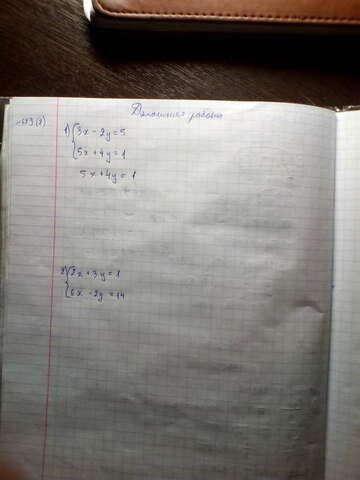 Домашняя работа
№ 639(2)
1) { 3x - 2y = 5
5x + 4y = 1
5x + 4y = 1
2) { 2x + 3y = 1
6x - 2y = 14